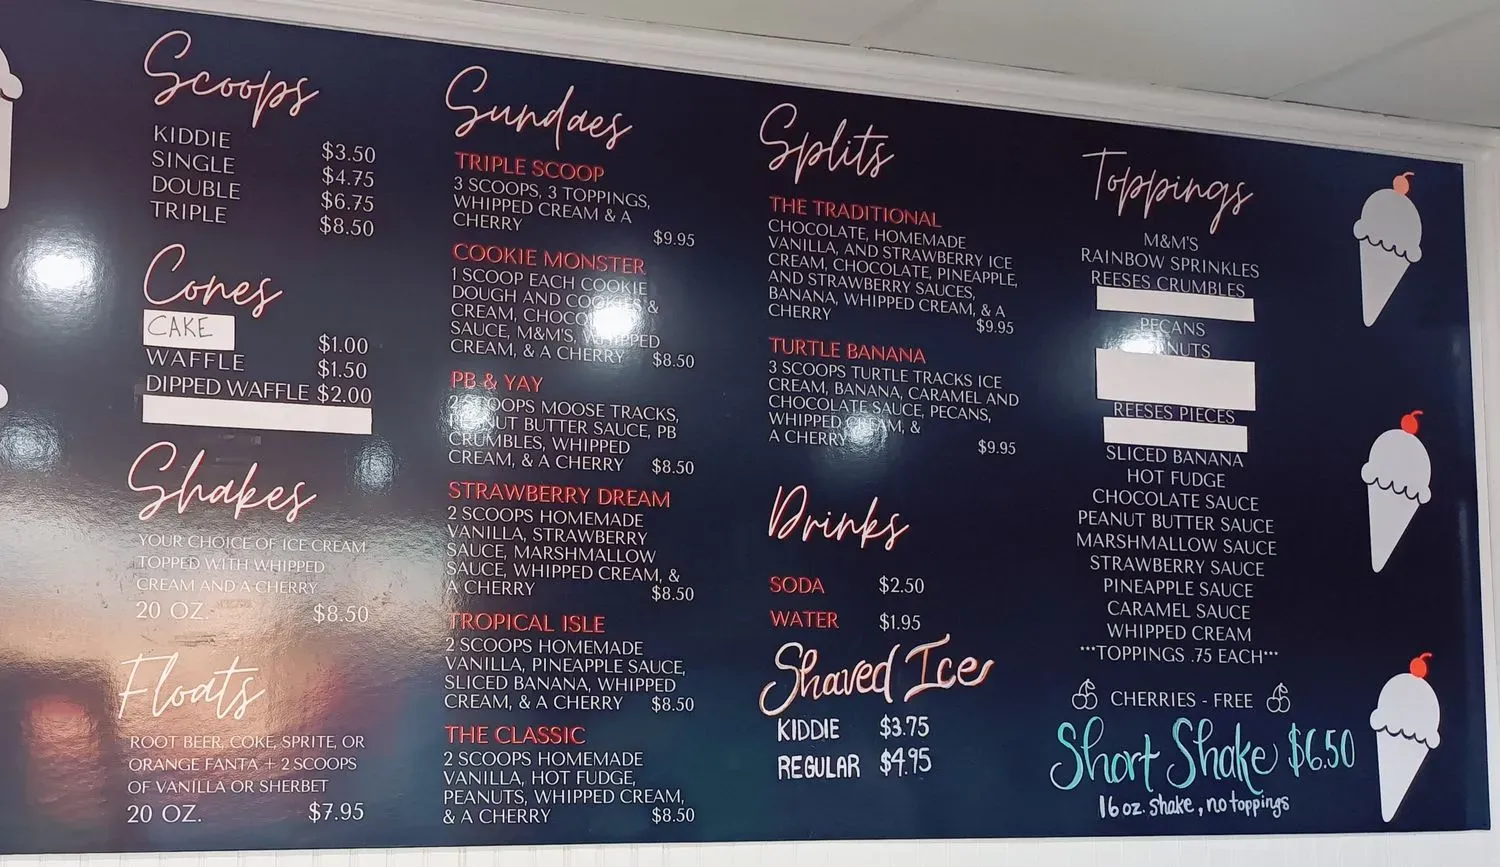 Scoops
KIDDIE $3.50
SINGLE $4.75
DOUBLE $6.75
TRIPLE $8.50
Cones
CAKE $1.00
WAFFLE $1.50
DIPPED WAFFLE $2.00
Shakes
YOUR CHOICE OF ICE CREAM
TOPPED WITH WHIPPED
CREAM AND A CHERRY
20 OZ. $8.50
Floats
ROOT BEER, COKE, SPRITE, OR
ORANGE FANTA + 2 SCOOPS
OF VANILLA OR SHERBET
20 OZ. $7.95
Sundaes
TRIPLE SCOOP
3 SCOOPS, 3 TOPPINGS,
WHIPPED CREAM & A
CHERRY
$9.95
COOKIE MONSTER
1 SCOOP EACH COOKIE
DOUGH AND COOKIES &
CREAM, CHOCO
SAUCE, M&M'S, WHIPPED
CREAM, & A CHERRY $8.50
PB & YAY
2 SCOOPS MOOSE TRACKS,
PEANUT BUTTER SAUCE, PB
CRUMBLES, WHIPPED
CREAM, & A CHERRY $8.50
STRAWBERRY DREAM
2 SCOOPS HOMEMADE
VANILLA, STRAWBERRY
SAUCE, MARSHMALLOW
SAUCE, WHIPPED CREAM, &
A CHERRY $8.50
TROPICAL ISLE
2 SCOOPS HOMEMADE
VANILLA, PINEAPPLE SAUCE,
SLICED BANANA, WHIPPED
CREAM, & A CHERRY $8.50
THE CLASSIC
2 SCOOPS HOMEMADE
VANILLA, HOT FUDGE,
PEANUTS, WHIPPED CREAM,
& A CHERRY $8.50
Splits
THE TRADITIONAL
CHOCOLATE, HOMEMADE
VANILLA, AND STRAWBERRY ICE
CREAM, CHOCOLATE, PINEAPPLE,
AND STRAWBERRY SAUCES,
BANANA, WHIPPED CREAM, & A
CHERRY $9.95
TURTLE BANANA
3 SCOOPS TURTLE TRACKS ICE
CREAM, BANANA, CARAMEL AND
CHOCOLATE SAUCE, PECANS,
WHIPPED CREAM, &
A CHERRY $9.95
Drinks
SODA $2.50
WATER $1.95
Shaved Ice
KIDDIE $3.75
REGULAR $4.95
Toppings
M&M'S
RAINBOW SPRINKLES
REESES CRUMBLES
PECANS
REESES PIECES
SLICED BANANA
HOT FUDGE
CHOCOLATE SAUCE
PEANUT BUTTER SAUCE
MARSHMALLOW SAUCE
STRAWBERRY SAUCE
PINEAPPLE SAUCE
CARAMEL SAUCE
WHIPPED CREAM
***TOPPINGS .75 EACH***
CHERRIES - FREE
Short Shake $6.50
16 oz. shake, no toppings